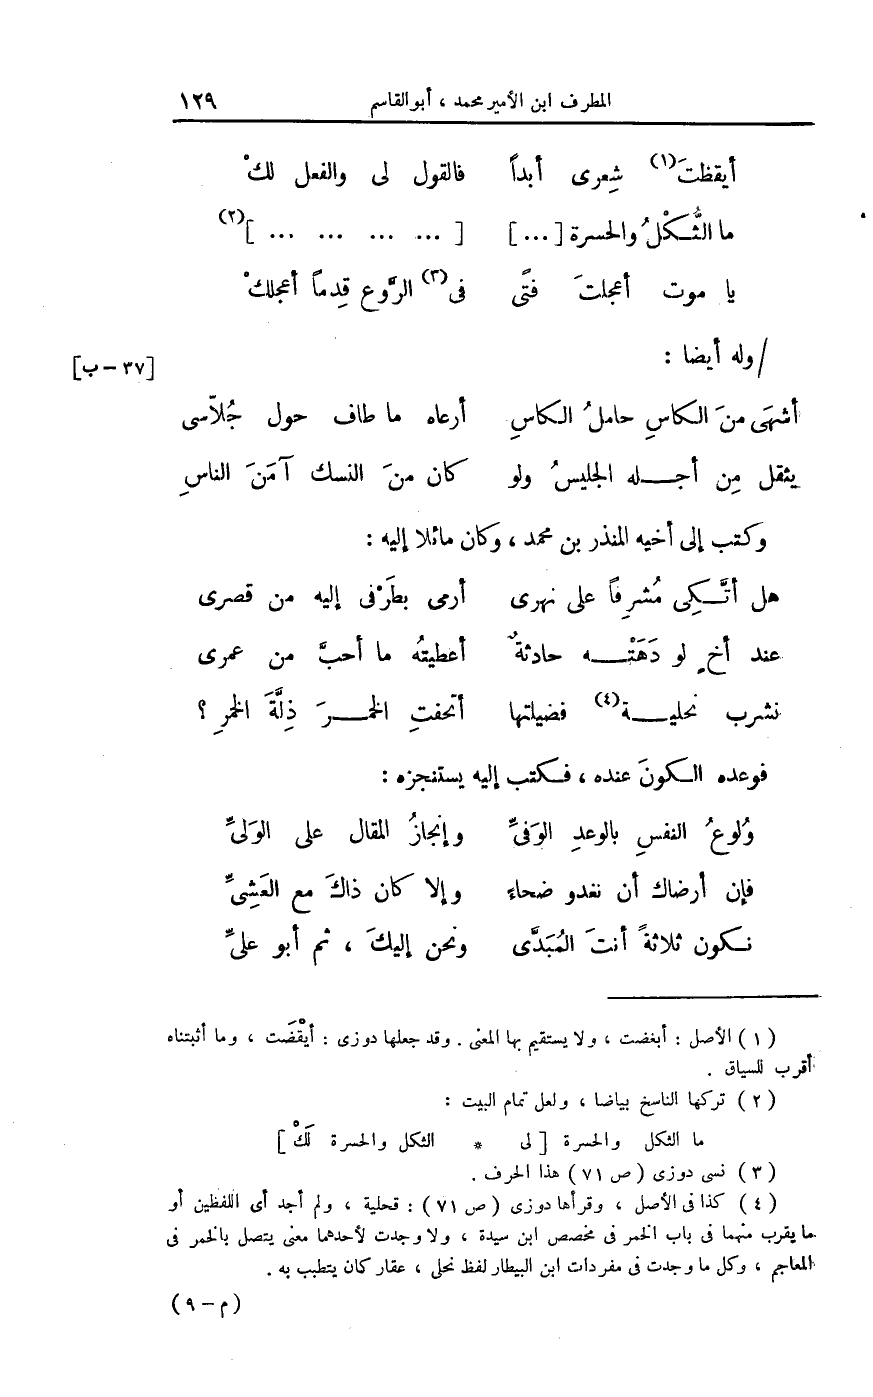 المطرف ابن الأمير محمد ، أبو القاسم ١٢٩
أيقظتَ(١) شِعرى أبداً فالقول لى والفعل لكْ
ما الثُّكْلُ والحسرة [...] [... ... ... ...](٢)
يا موت أعجلتَ فتًى فى(٣) الرَّوع قِدماً أعجلكْ
/وله أيضا : [٣٧ – ب]
أشهَى منَ الكاسِ حاملُ الكاسِ أرعاه ما طاف حول جُلاّسى
يثقل مِن أجـله الجليسُ ولو كان منَ النسك آمَنَ الناسِ
وكتب إلى أخيه المنذر بن محمد ، وكان مائلا إليه :
هل أتَّـكِى مُشرِفاً على نهرى أرمى بطَرْفى إليه من قصرى
عند أخٍ لو دَهَتْـه حادثةٌ أعطيتهُ ما أحبَّ من عمرى
نشرب نحليـة(٤) فضيلتها أتحفتِ الخمـرَ ذِلَّةَ الخمرِ ؟
فوعده الكونَ عنده ، فكتب إليه يستنجزه :
وُلوعُ النفسِ بالوعدِ الوَفىِّ وإنجازُ المقال على الوَلىِّ
فإن أرضاك أن نغدو ضحاءً وإلا كان ذاكَ مع العَشِىِّ
نكون ثلاثةً أنتَ المُبَدَّى ونحن إليكَ ، ثم أبو علىِّ
( ١ ) الأصل : أبغضت ، ولا يستقيم بها المعنى . وقد جعلها دوزى : أَيْقَضَت ، وما أثبتناه
أقرب للسياق .
( ٢ ) تركها الناسخ بياضا ، ولعل تمام البيت :
ما الثكل والحسرة [ لى * الثكل والحسرة لَكْ ]
( ٣ ) نسى دوزى ( ص ٧١ ) هذا الحرف .
( ٤ ) كذا فى الأصل ، وقرأها دوزى ( ص ٧١ ) : قحلية ، ولم أجد أى اللفظين أو
ما يقرب منهما فى باب الخمر فى مخصص ابن سيدة ، ولا وجدت لأحدهما معنى يتصل بالخمر فى
المعاجم ، وكل ما وجدت فى مفردات ابن البيطار لفظ نحلى ، عقار كان يتطبب به .
( م – ٩ )